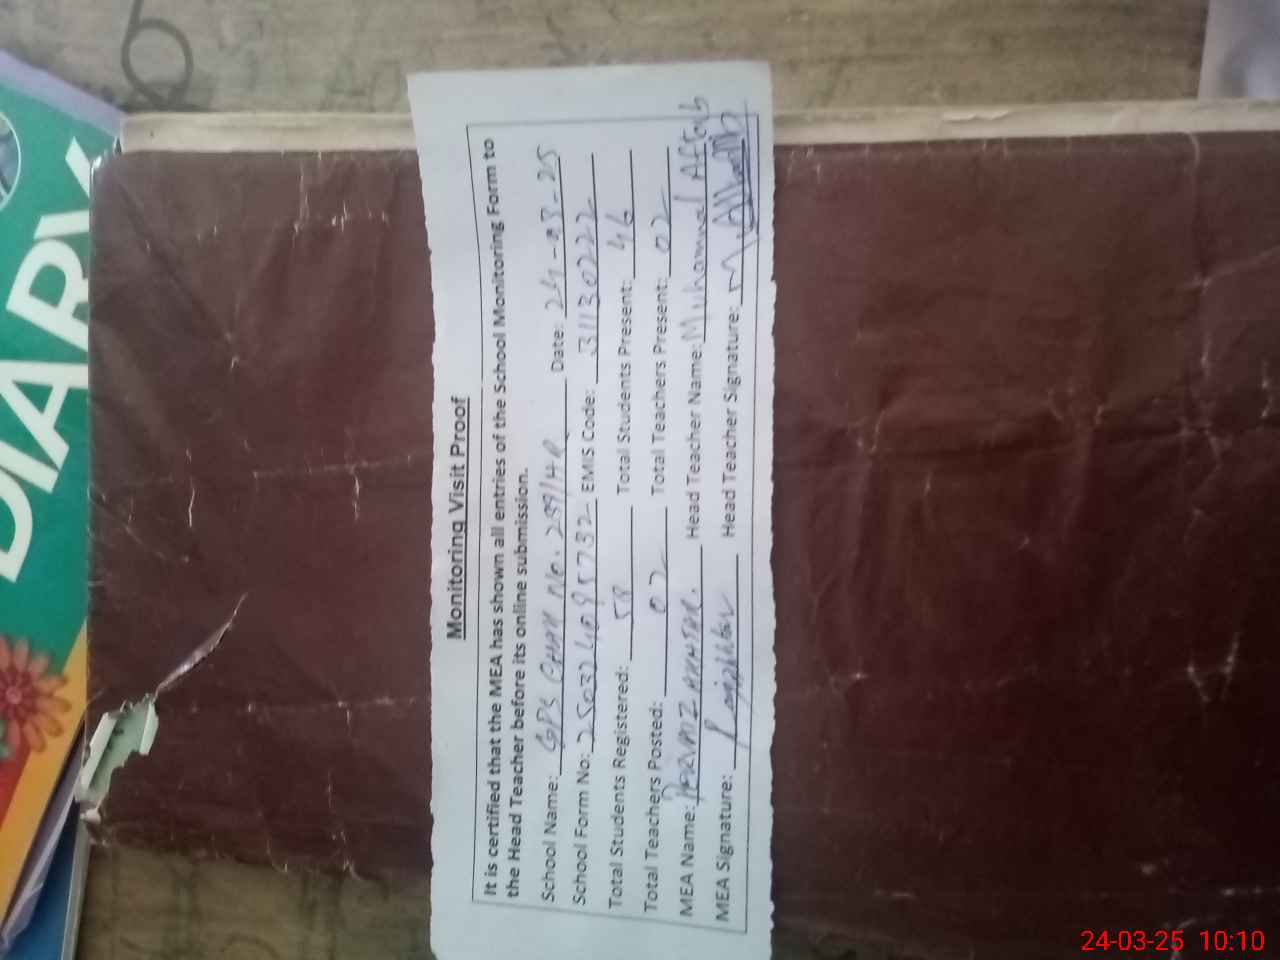 Monitoring Visit Proof
It is certified that the MEA has shown all entries of the School Monitoring Form to
the Head Teacher before its online submission.
School Name: GPS CHAK No. 299/HR Date: 24-03-25
School Form No: 25032409 EMIS Code: 31130222
Total Students Registered: 58 Total Students Present: 46
Total Teachers Posted: 02 Total Teachers Present: 02
MEA Name: PERVAIZ AKHTAR. Head Teacher Name: Muhammad Aftab
MEA Signature: Head Teacher Signature:
DIARY
24-03-25 10:10